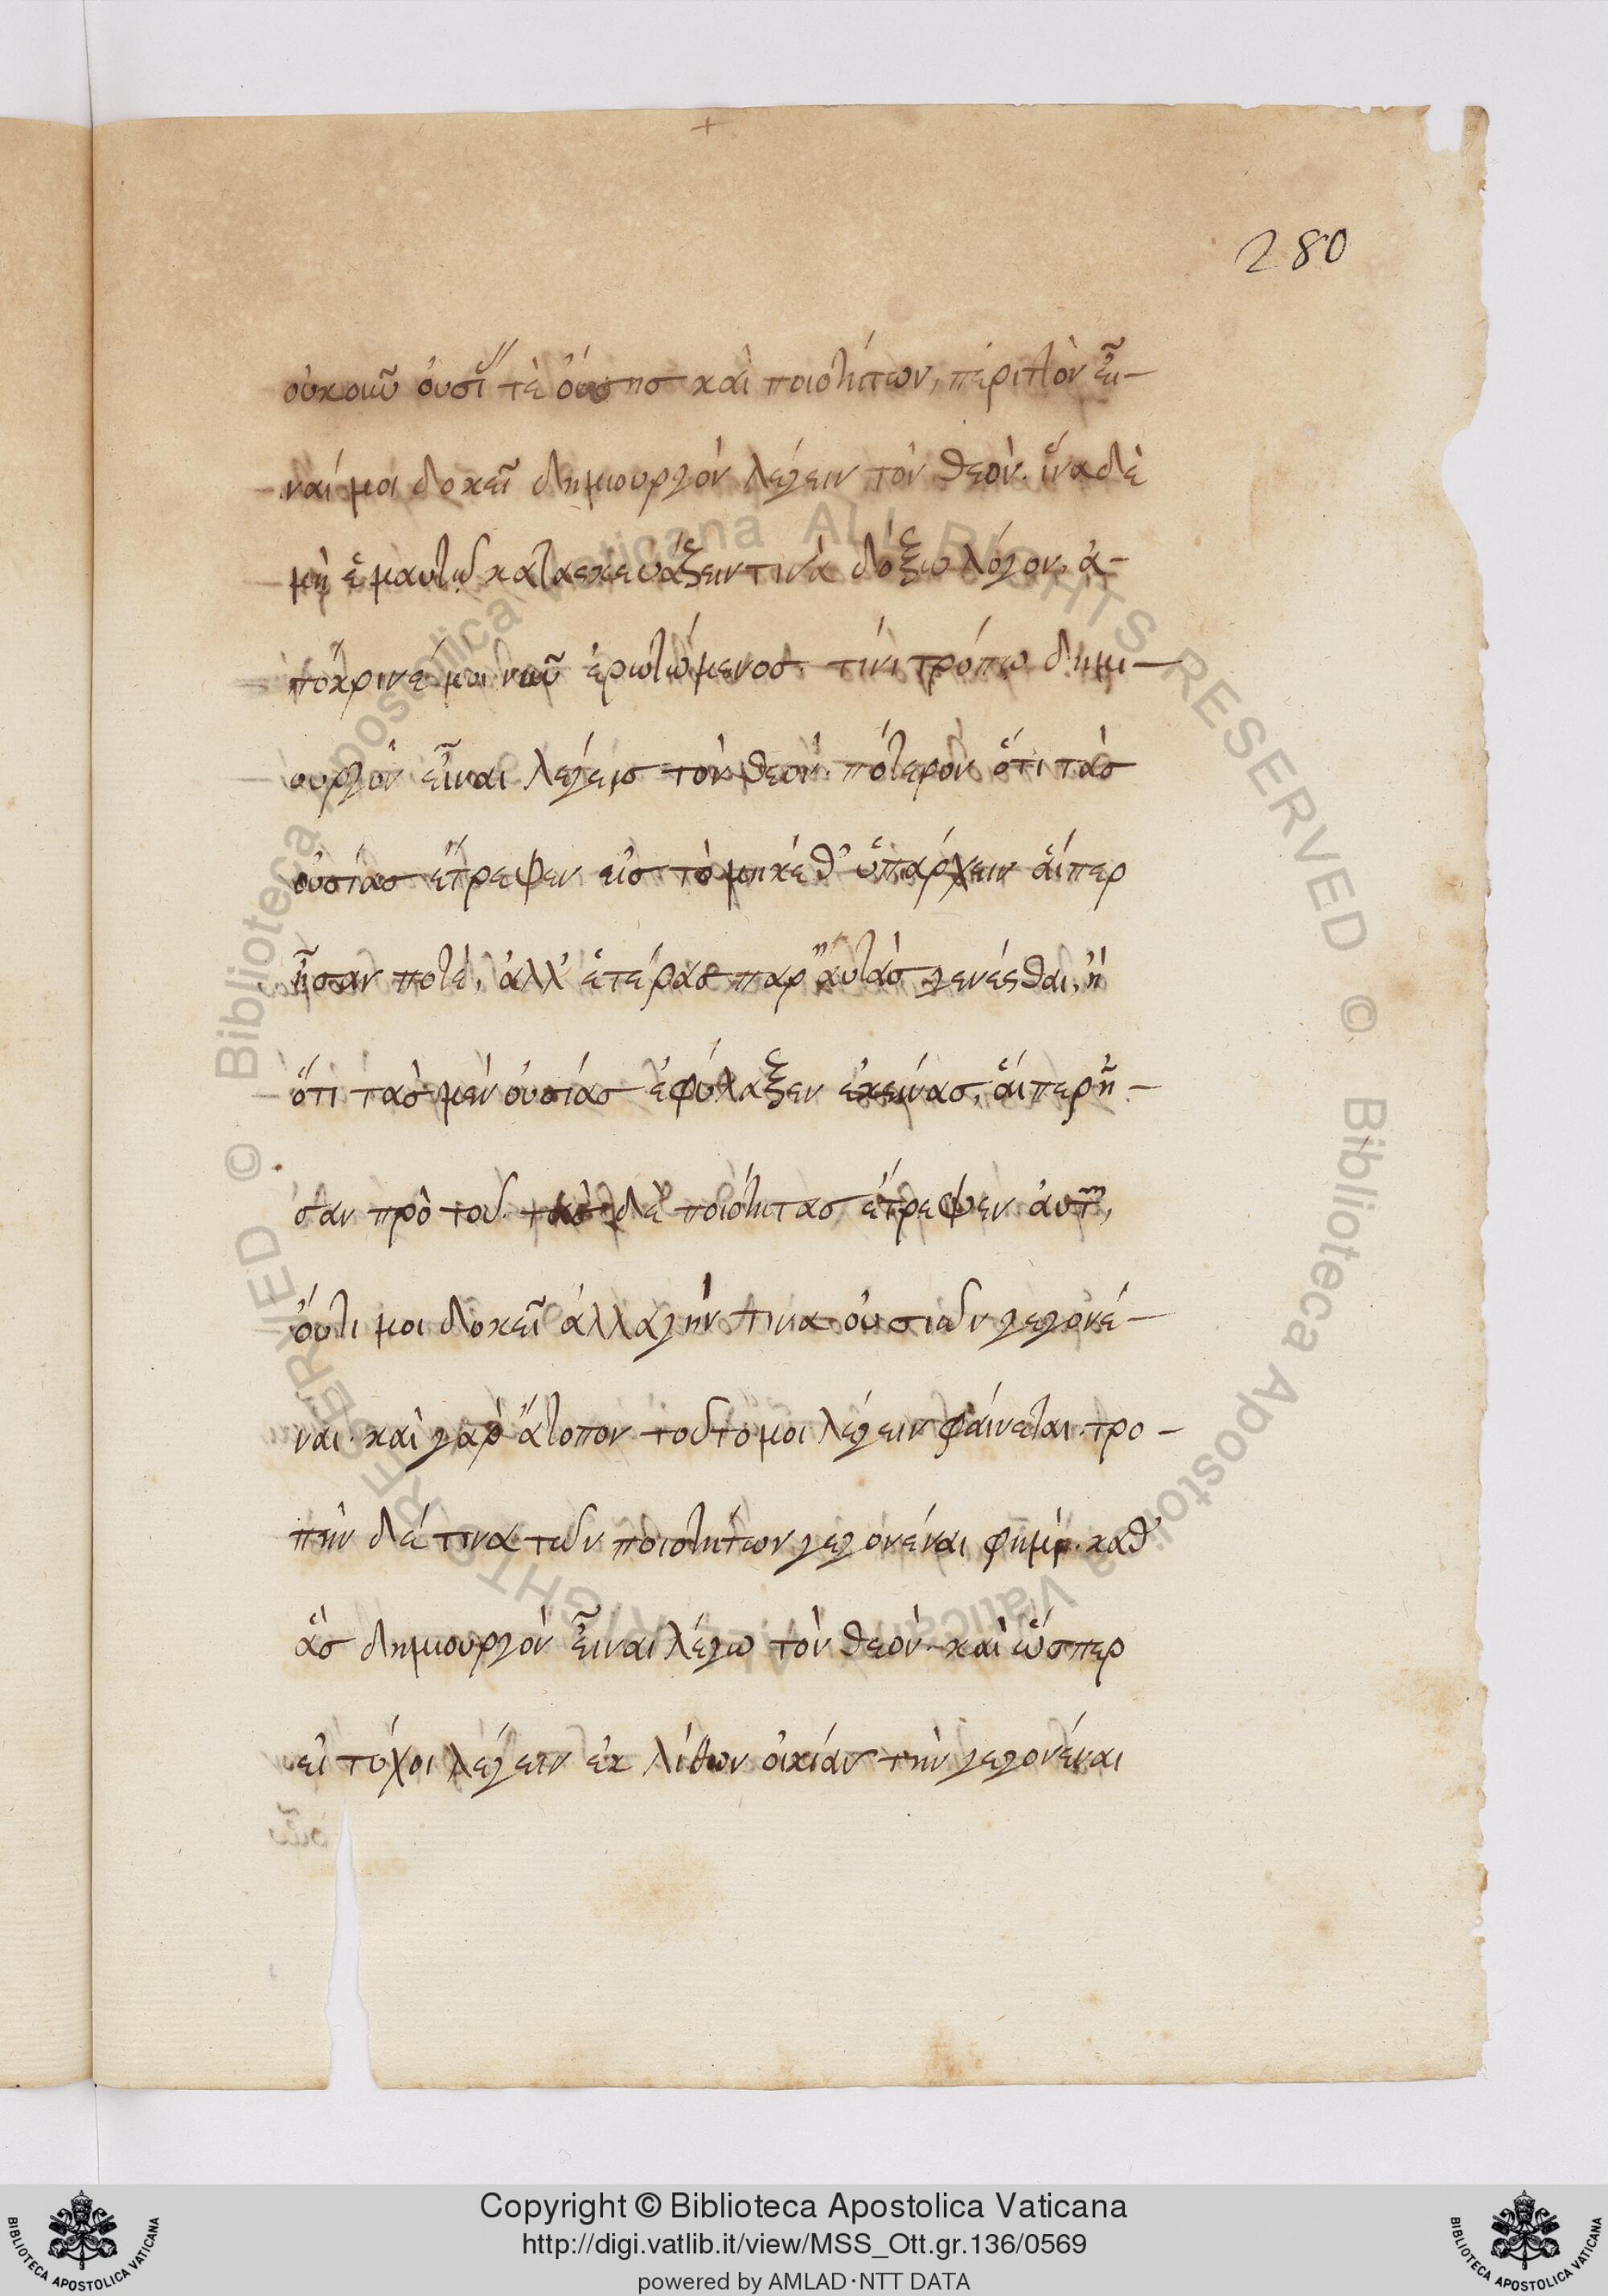 280
οὐκοιῦ οὐσί τὲ ὀύσησ καὶ ποιοτήτων, πέριττὸν εἶ-
ναί μοι δοκεῖ δημιουργὸν λέγειν τὸν θεὸν. ἵνα δὲ
μὴ ἐμαυτῶ κατασκευάζειν τινὰ δόξω λόγον, ἀ-
πόκριναί μοι νιῦ ἐρωτώμενοσ. τίνι τρόπω δημι-
ουργὸν εἶναι λέγεισ τὸν θεόν. πότερον ὅτι τὰσ
οὐσίασ ἔτρεψεν εἰσ τὸ μηκέθ' ὑπάρχειν ἅιπερ
ἦσαν ποτέ, ἀλλ' ἑτέρασ παρ' ἀυτὰσ γενέσθαι, ἢ
ὅτι τὰσ μὲν οὐσίασ ἐφύλαξεν ἐκείνασ, ἅιπερ ἦ-
σαν πρὸ τοῦ. τὰσ δὲ ποιότητασ ἔτρεψεν ἀυτῶν,
ὄυτι μοι δοκεῖ ἀλλαγήν τινα οὐσιῶν γεγονέ-
ναι. καὶ γὰρ ἄτοπον τοῦτό μοι λέγειν φαίνεται. τρο-
πὴν δέ τινα τῶν ποιοτήτων γεγονέναι φημὶ. καθ'
ἃσ δημιουργὸν εἶναι λέγω τὸν θεόν. καὶ ὥσπερ
εἰ τύχοι λέγειν ἐκ λίθων οἰκίαν τὴν γεγονέναι
© Biblioteca Apostolica Vaticana ALL RIGHTS RESERVED © Biblioteca Apostolica Vaticana ALL RIGHTS RESERVED
Copyright © Biblioteca Apostolica Vaticana
http://digi.vatlib.it/view/MSS_Ott.gr.136/0569
powered by AMLAD·NTT DATA
BIBLIOTECA APOSTOLICA VATICANA
BIBLIOTECA APOSTOLICA VATICANA